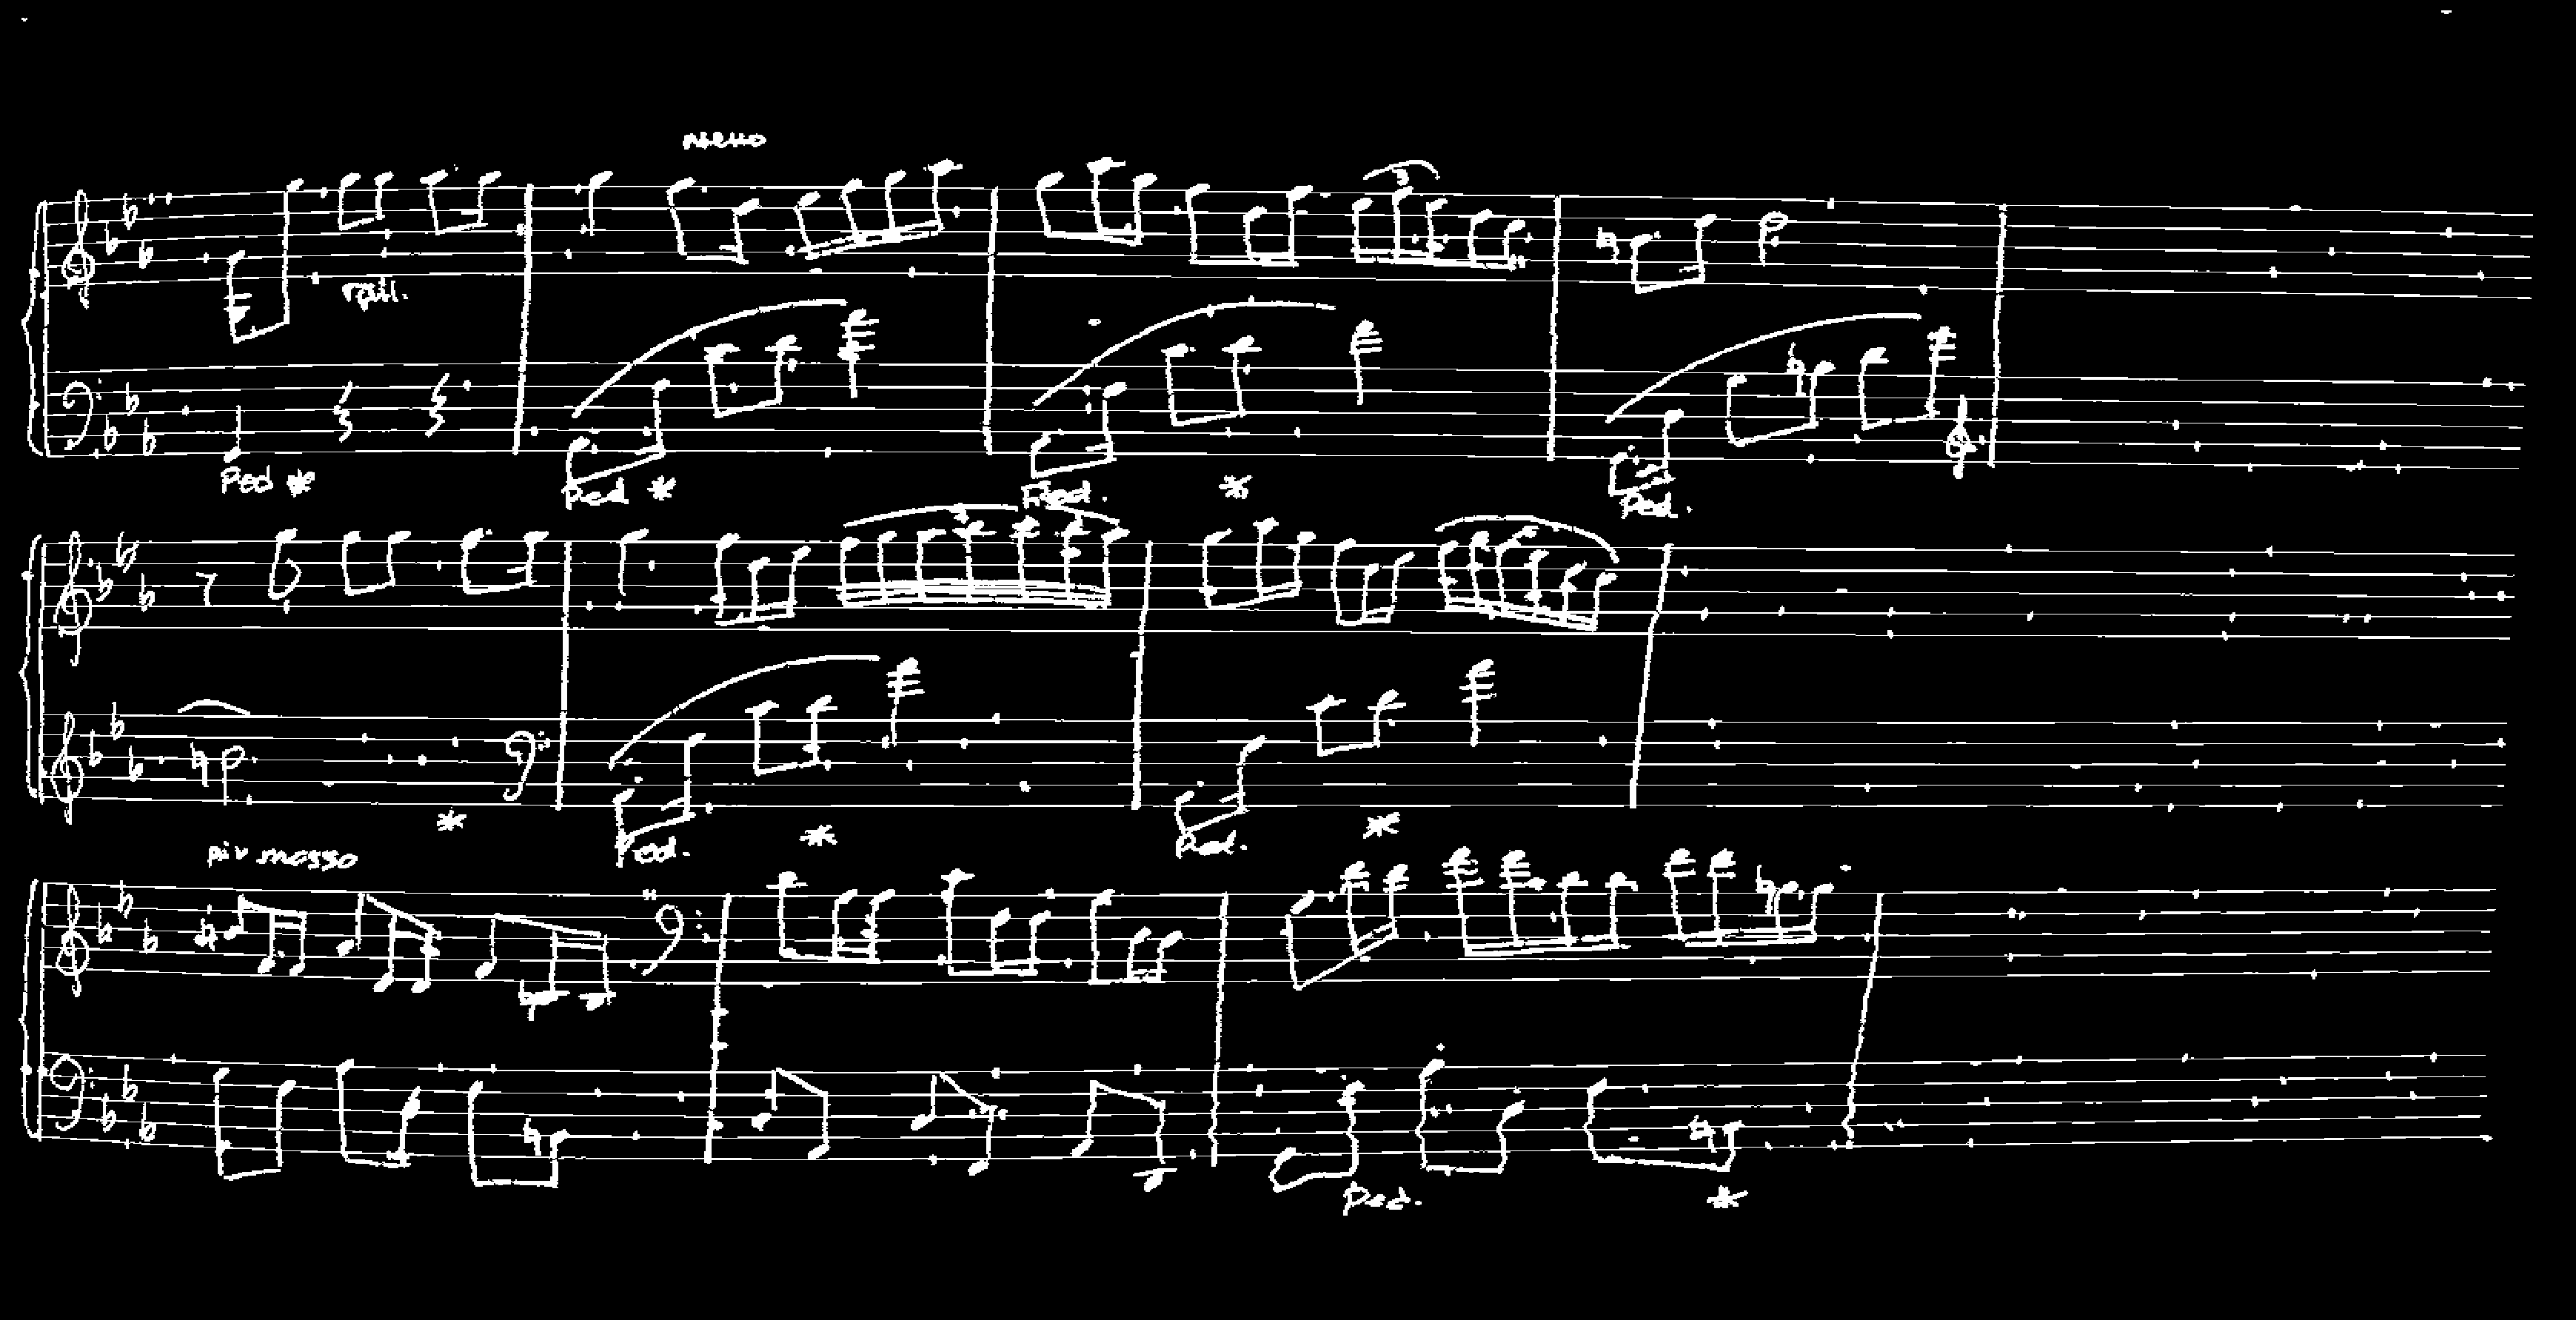 meno
3
rall.
Ped * Ped * Ped. * Ped.
* Ped. * Ped. *
piu mosso
Ped. *